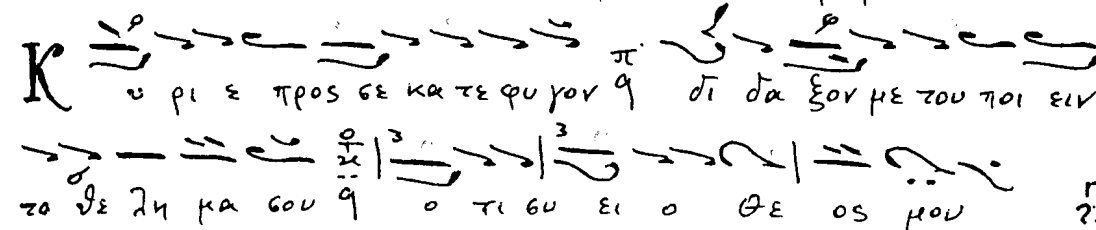 Κ υ ρι ε προς σε κα τε φυ γον π ϥ δι δα ξον με του ποι ειν
το θε λη μα σου ϥ ο τι συ ει ο θε ος μου